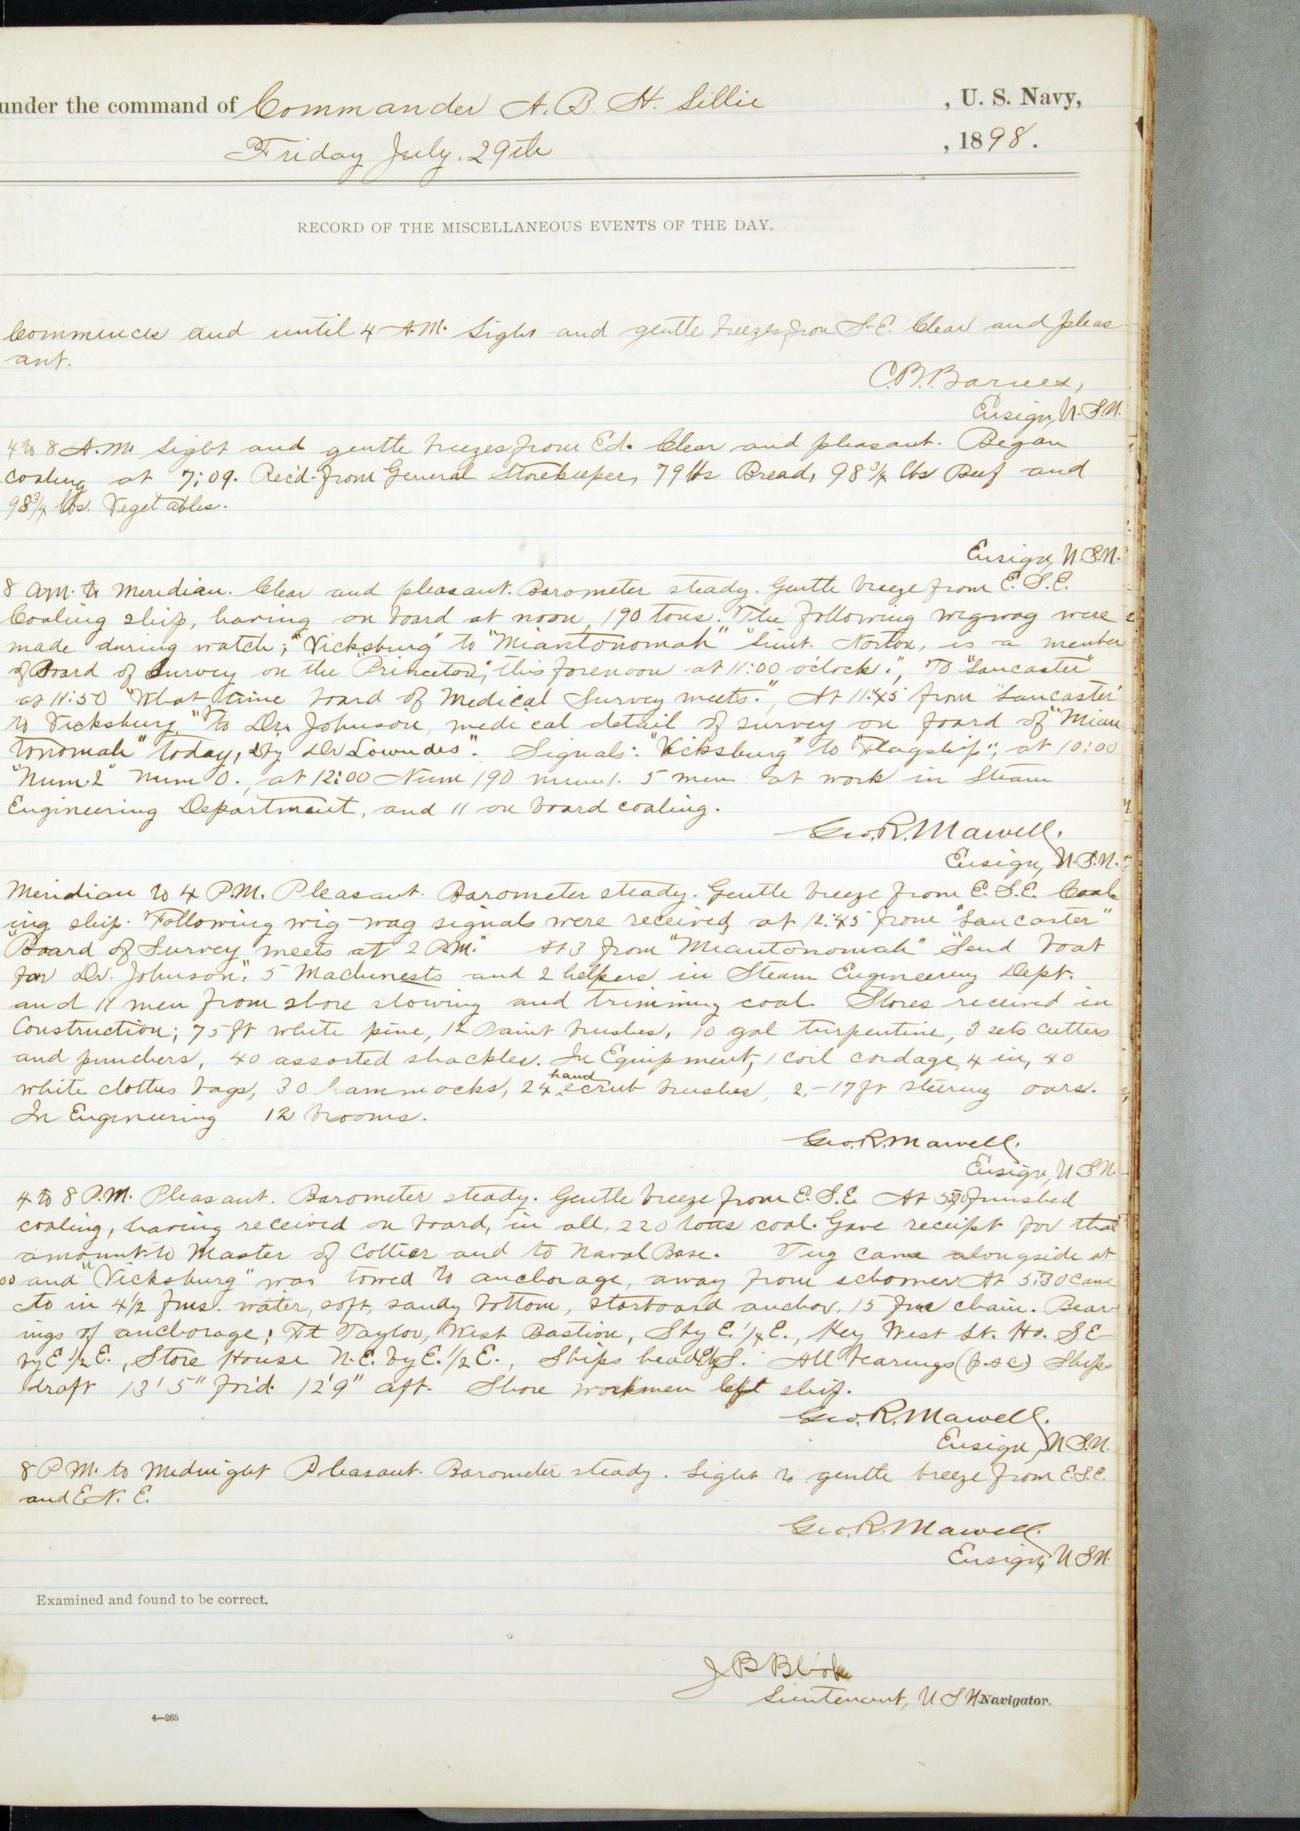 under the command of Commander A. B. H. Lillie , U. S. Navy,
Friday July 29th , 1898.
RECORD OF THE MISCELLANEOUS EVENTS OF THE DAY.
Commences and until 4 A.M. Light and gentle breezes from S-E. Clear and pleas-
ant.
C.B. Barnes,
Ensign, U.S.N.
4 to 8 A.M. Light and gentle breezes from Ed. Clear and pleasant. Began
coaling at 7:09. Rec'd from General Storekeeper, 79 lbs Bread, 98 3/4 lbs Beef and
98 3/4 lbs. Vegetables.
Ensign, U.S.N.
8 A.M. to Meridian. Clear and pleasant. Barometer steady. Gentle breeze from E.S.E.
Coaling ship, having on board at noon, 190 tons. The following wigwag were
made during watch; "Vicksburg" to "Miantonomah" "Lieut. Norton, is a member
of Board of Survey on the "Princeton", this forenoon at 11:00 o'clock." To "Lancaster"
at 11:50 "What time board of Medical Survey meets." At 11:45 from "Lancaster"
to Vicksburg "To Dr. Johnson, medical detail of survey on board of "Mian
tonomah" today, by Dr Lowndes". Signals: "Vicksburg" to "Flagship", at 10:00
"Num 2" Num 0., at 12:00 Num 190 num 1. 5 men at work in Steam
Engineering Department, and 11 on board coaling.
Geo. R. Marvell.
Ensign, U.S.N.
Meridian to 4 P.M. Pleasant. Barometer steady. Gentle breeze from E.S.E. Coal-
ing ship. Following wig-wag signals were received, at 12:45 from "Lancaster"
Board of Survey meets at 2 P.M." At 3 from "Miantonomah" "Send boat
for Dr. Johnson". 5 Machinests and 2 helpers in Steam Engineering Dept.
and 11 men from shore stowing and trimming coal. Stores received in
Construction; 75 ft white pine, 12 Paint brushes, 10 gal turpentine, 3 sets cutters
and punchers, 40 assorted shackles. In Equipment, 1 coil cordage, 4 in, 40
white clothes bags, 30 hammocks, 24 hand scrub brushes, 2,-17 ft steering oars.
In Engineering 12 brooms.
Geo. R. Marvell.
Ensign, U.S.N.
4 to 8 P.M. Pleasant. Barometer steady. Gentle breeze from E.S.E. At finished
coaling, having received on board, in all, 220 tons coal. Gave receipt for that
amount to Master of Collier and to Naval Base. Tug came alongside at
00 and "Vicksburg" was towed to anchorage, away from schooner At 5:30 came
to in 4 1/2 fms. water, soft, sandy bottom, starboard anchor, 15 fms chain. Bear-
ings of anchorage; Ft Taylor, West Bastion, S by E. 1/4 E., Key West Lt. Ho. SE
by E. 1/2 E., Store House N.E. by E. 1/2 E., Ships head E by S. All bearings (p.s.c) Ships
draft 13' 5" for'd. 12' 9" aft. Shore workmen left ship.
Geo. R. Marvell.
Ensign, U.S.N.
8 P.M. to Midnight Pleasant. Barometer steady. Light to gentle breeze from E.S.E.
and E.N.E.
Geo. R. Marvell.
Ensign, U.S.N.
Examined and found to be correct.
J B Blish
Lieutenant, U S N Navigator.
4—265